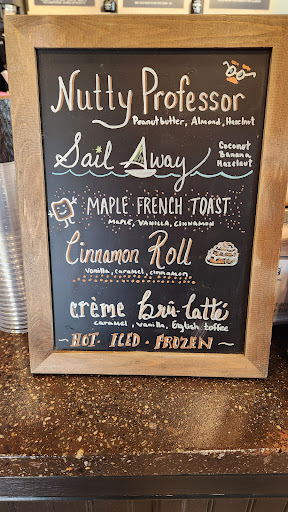 Nutty Professor
Peanutbutter, Almond, Hazelnut
Sail Away
Coconut
Banana
Hazelnut
MAPLE FRENCH TOAST
MAPLE, VANILLA, CINNAMON
Cinnamon Roll
Vanilla, caramel, cinnamon
crème brû-latté
caramel, vanilla, English toffee
~ HOT · ICED · FROZEN ~